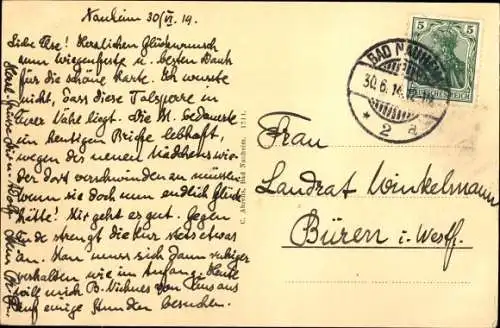 Nauheim 30/VI. 19.
Liebe Else! Herzlichen Glückwunsch
zum Wiegenfeste u. besten Dank
für die schöne Karte. Ich wusste
nicht, dass diese Talsperre in
Eurer Nähe liegt. Die M. bedauerte
im heutigen Briefe lebhaft,
wegen des neuen Mädchens wie-
der dort verschwinden zu müssen
wenn sie doch nun endlich Glück
hätte! Mir geht es gut. Gegen
Ende strengt die Kur stets etwas
an. Man muss sich dann ruhiger
verhalten wie im Anfang. Heute
will mich B. von aus
auf einige Stunden besuchen.
Herzl. Grüsse
C. Ahrens, Bad Nauheim. 1711.
5 5
DEUTSCHES REICH
BAD NAUHEIM
30.6.14.
* 2 a
Frau
Landrat Winkelmann
Büren i. Westf.